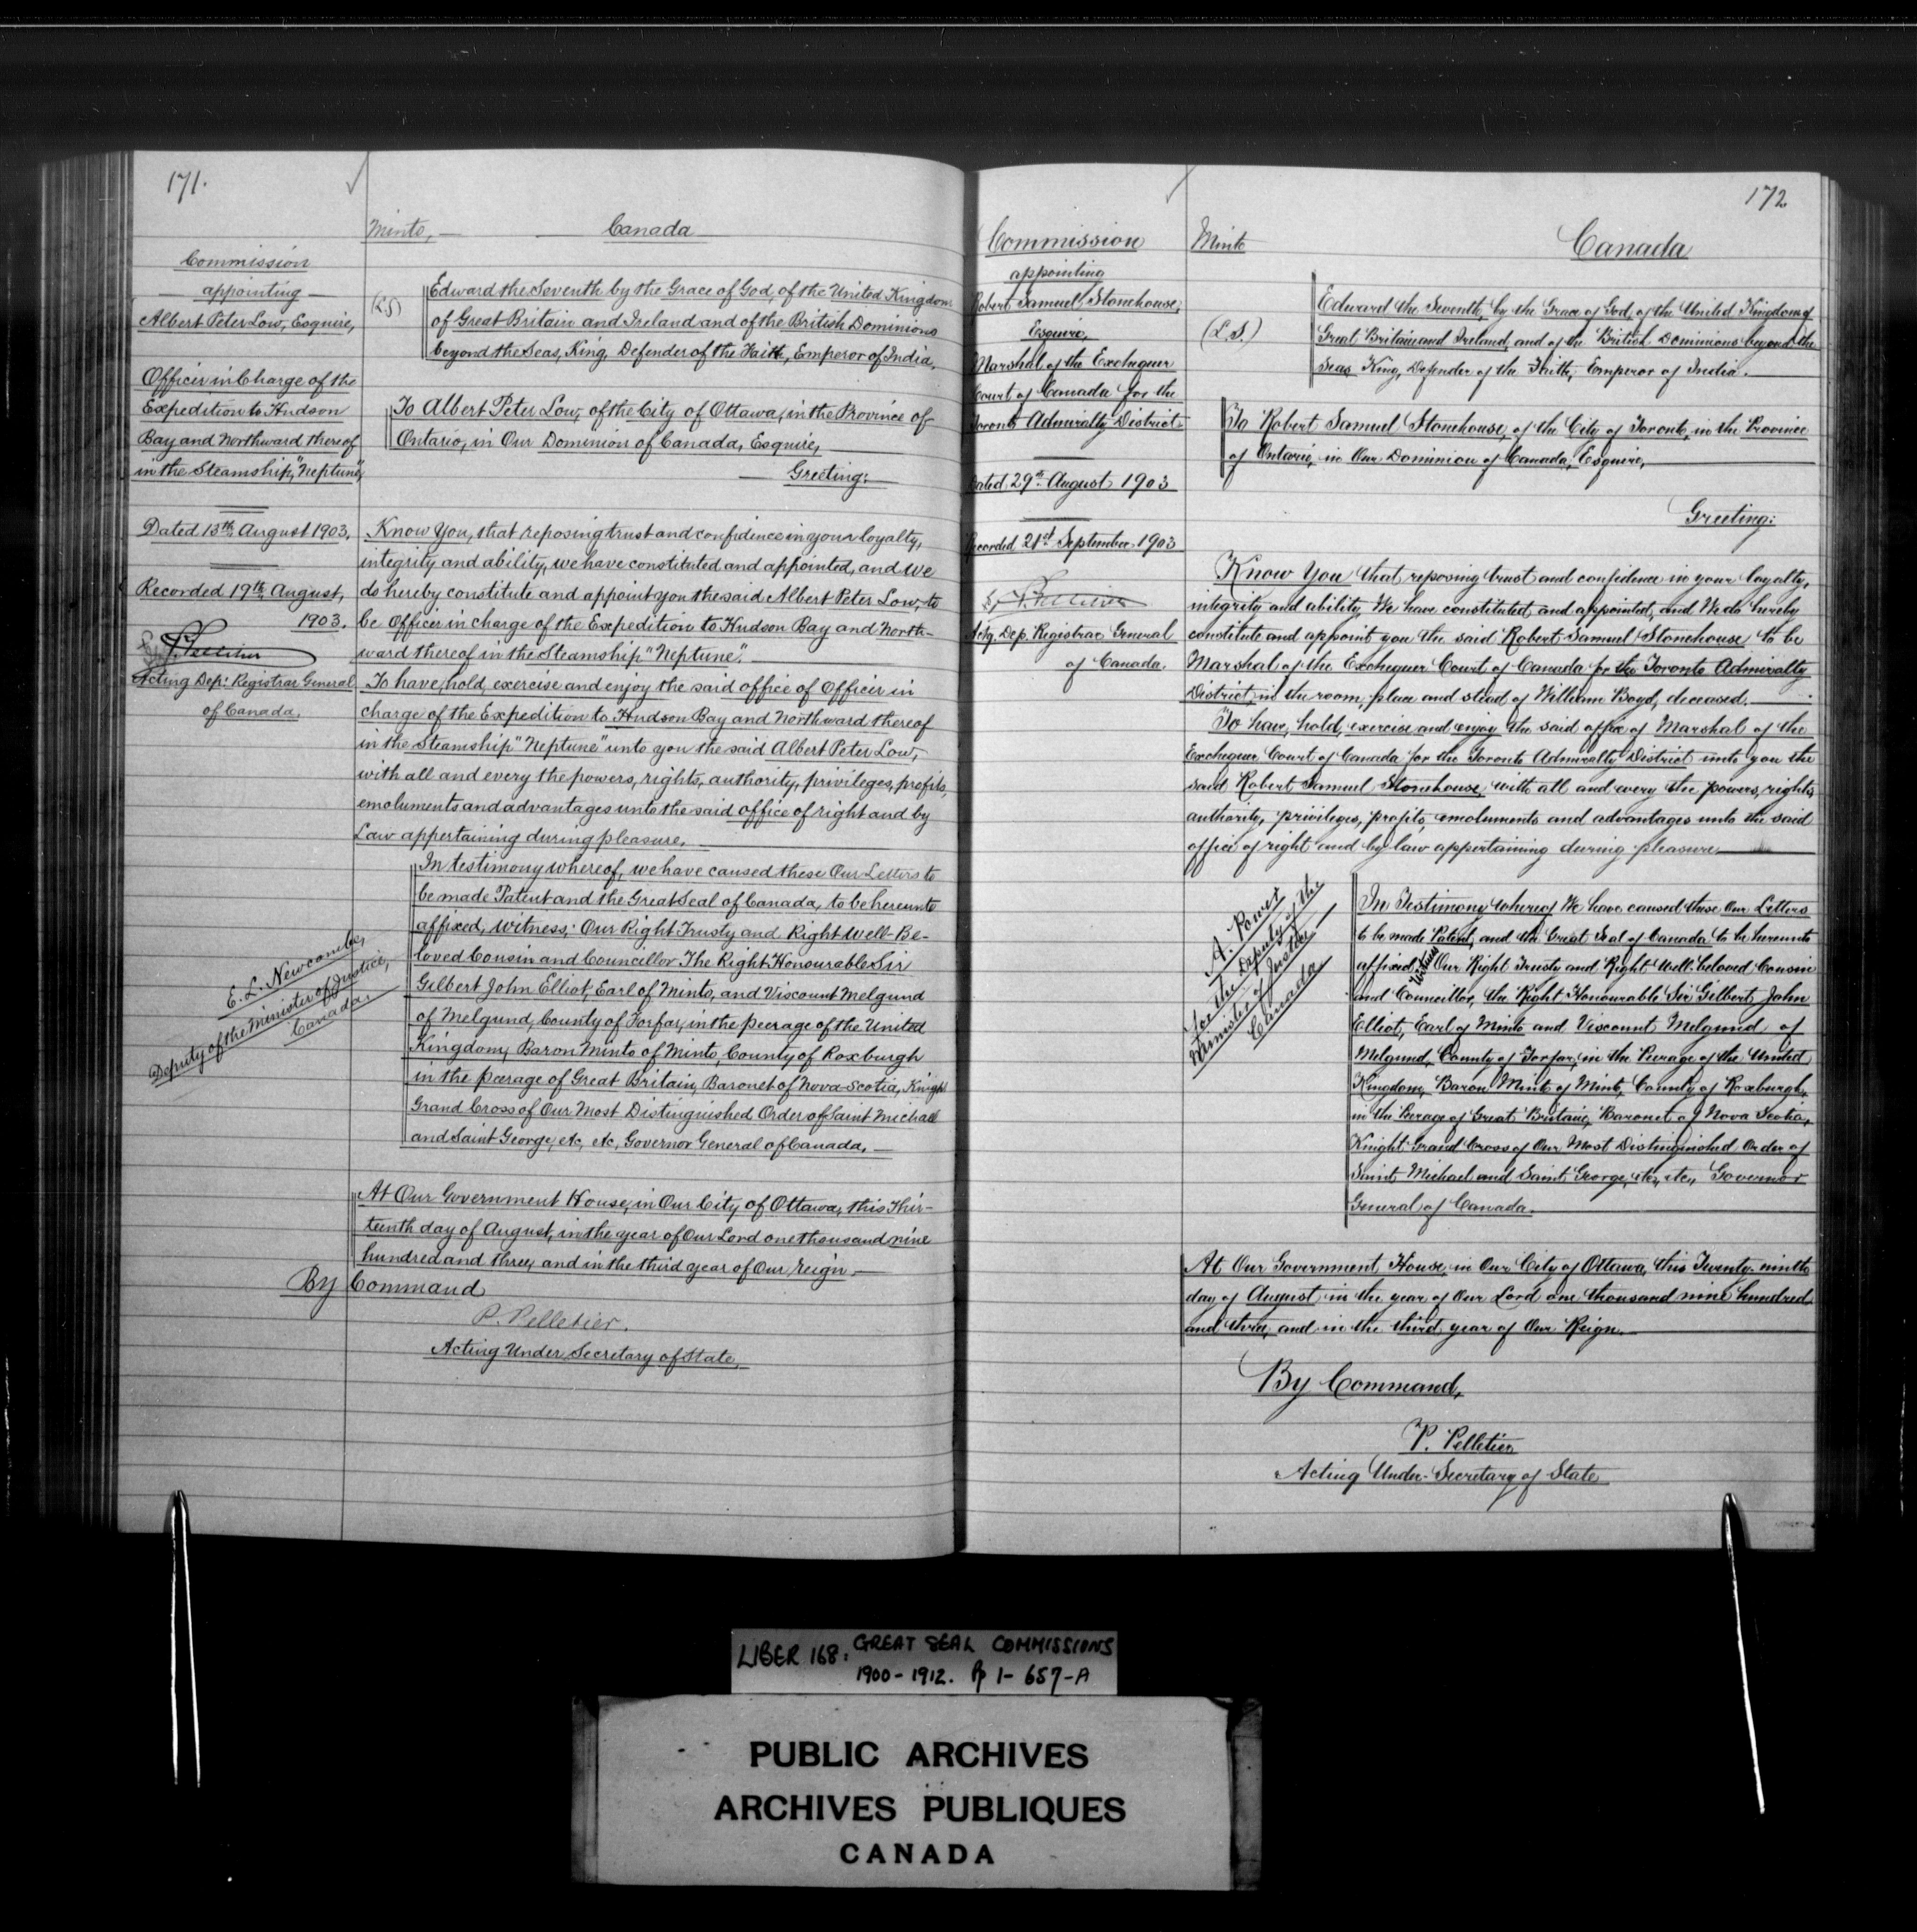 171.
Commission
appointing
Albert Peter Low, Esquire,
Officer in Charge of the
Expedition to Hudson
Bay and Northward thereof
in the Steamship, "Neptune",
Dated 13th August 1903.
Recorded 19th August,
1903.
P. Pelletier
Acting Dep. Registrar General
of Canada.
E. L. Newcombe,
Deputy of the Minister of Justice,
Canada.
Minto, Canada
(L.S)
Edward the Seventh by the Grace of God, of the United Kingdom
of Great Britain and Ireland and of the British Dominions
beyond the Seas, King, Defender of the Faith, Emperor of India.
To Albert Peter Low, of the City of Ottawa, in the Province of
Ontario, in Our Dominion of Canada, Esquire,
Greeting:
Know You, that reposing trust and confidence in your loyalty,
integrity and ability, we have constituted and appointed, and we
do hereby constitute and appoint you the said Albert Peter Low, to
be Officer in charge of the Expedition to Hudson Bay and North-
ward thereof in the Steamship "Neptune".
To have, hold, exercise and enjoy the said office of Officer in
charge of the Expedition to Hudson Bay and Northward thereof
in the Steamship "Neptune" unto you the said Albert Peter Low,
with all and every the powers, rights, authority, privileges, profits,
emoluments and advantages unto the said office of right and by
Law appertaining during pleasure.
In testimony whereof, we have caused these Our Letters to
be made Patent and the Great Seal of Canada, to be hereunto
affixed, witness: Our Right Trusty and Right Well-Be-
loved Cousin and Councillor The Right Honourable Sir
Gilbert John Elliot, Earl of Minto, and Viscount Melgund
of Melgund, County of Forfar, in the peerage of the United
Kingdom, Baron Minto of Minto, County of Roxburgh
in the peerage of Great Britain, Baronet of Nova-Scotia, Knight
Grand Cross of Our Most Distinguished Order of Saint Michael
and Saint George, etc, etc, Governor General of Canada.
At Our Government House, in Our City of Ottawa, this Thir-
teenth day of August, in the year of Our Lord one thousand nine
hundred and three, and in the third year of Our reign.
By Command
P. Pelletier.
Acting Under Secretary of State.
172
Commission
appointing
Robert Samuel Stonehouse,
Esquire,
Marshal of the Exchequer
Court of Canada for the
Toronto Admiralty District
Dated 29th August 1903
Recorded 21st September 1903
P. Pelletier
Actg. Dep. Registrar General
of Canada.
A. Power
For the Deputy of the
Minister of Justice
Canada.
Minto Canada
(L.S.)
Edward the Seventh, by the Grace of God, of the United Kingdom of
Great Britain and Ireland, and of the British Dominions beyond the
Seas King, Defender of the Faith, Emperor of India.
To Robert Samuel Stonehouse, of the City of Toronto, in the Province
of Ontario, in Our Dominion of Canada, Esquire,
Greeting:
Know You that reposing trust and confidence in your loyalty,
integrity and ability We have constituted and appointed, and We do hereby
constitute and appoint you the said Robert Samuel Stonehouse to be
Marshal of the Exchequer Court of Canada for the Toronto Admiralty
District, in the room, place and stead of William Boyd, deceased.
To have, hold, exercise and enjoy the said office of Marshal of the
Exchequer Court of Canada for the Toronto Admiralty District unto you the
said Robert Samuel Stonehouse, with all and every the powers, rights,
authority, privileges, profits, emoluments and advantages unto the said
office of right and by law appertaining during pleasure
In Testimony whereof We have caused these Our Letters
to be made Patent, and the Great Seal of Canada to be hereunto
affixed, Witness Our Right Trusty and Right Well-beloved Cousin
and Councillor, the Right Honourable Sir Gilbert John
Elliot, Earl of Minto and Viscount Melgund of
Melgund, County of Forfar, in the Peerage of the United
Kingdom, Baron Minto of Minto, County of Roxburgh,
in the Peerage of Great Britain, Baronet of Nova Scotia,
Knight Grand Cross of Our Most Distinguished Order of
Saint Michael and Saint George, etc., etc., Governor
General of Canada.
At Our Government House, in Our City of Ottawa, this Twenty-ninth
day of August in the year of Our Lord one thousand nine hundred
and three, and in the third year of Our Reign.
By Command,
P. Pelletier
Acting Under-Secretary of State
LIBER 168: GREAT SEAL COMMISSIONS
1900-1912. Pp 1-657-A
PUBLIC ARCHIVES
ARCHIVES PUBLIQUES
CANADA